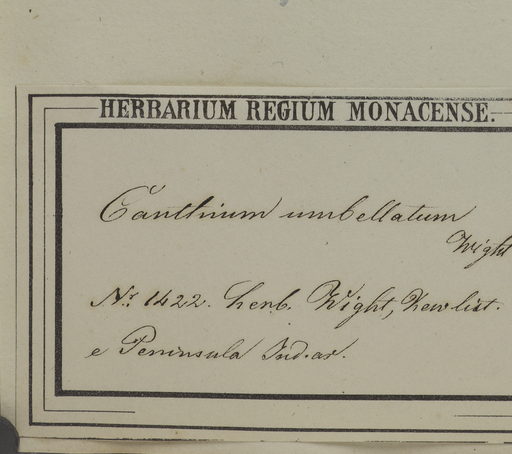 HERBARIUM REGIUM MONACENSE.
Canthium umbellatum
Wight
Nr. 1422. herb. Wight, Kew list.
e Peninsula Ind. or.